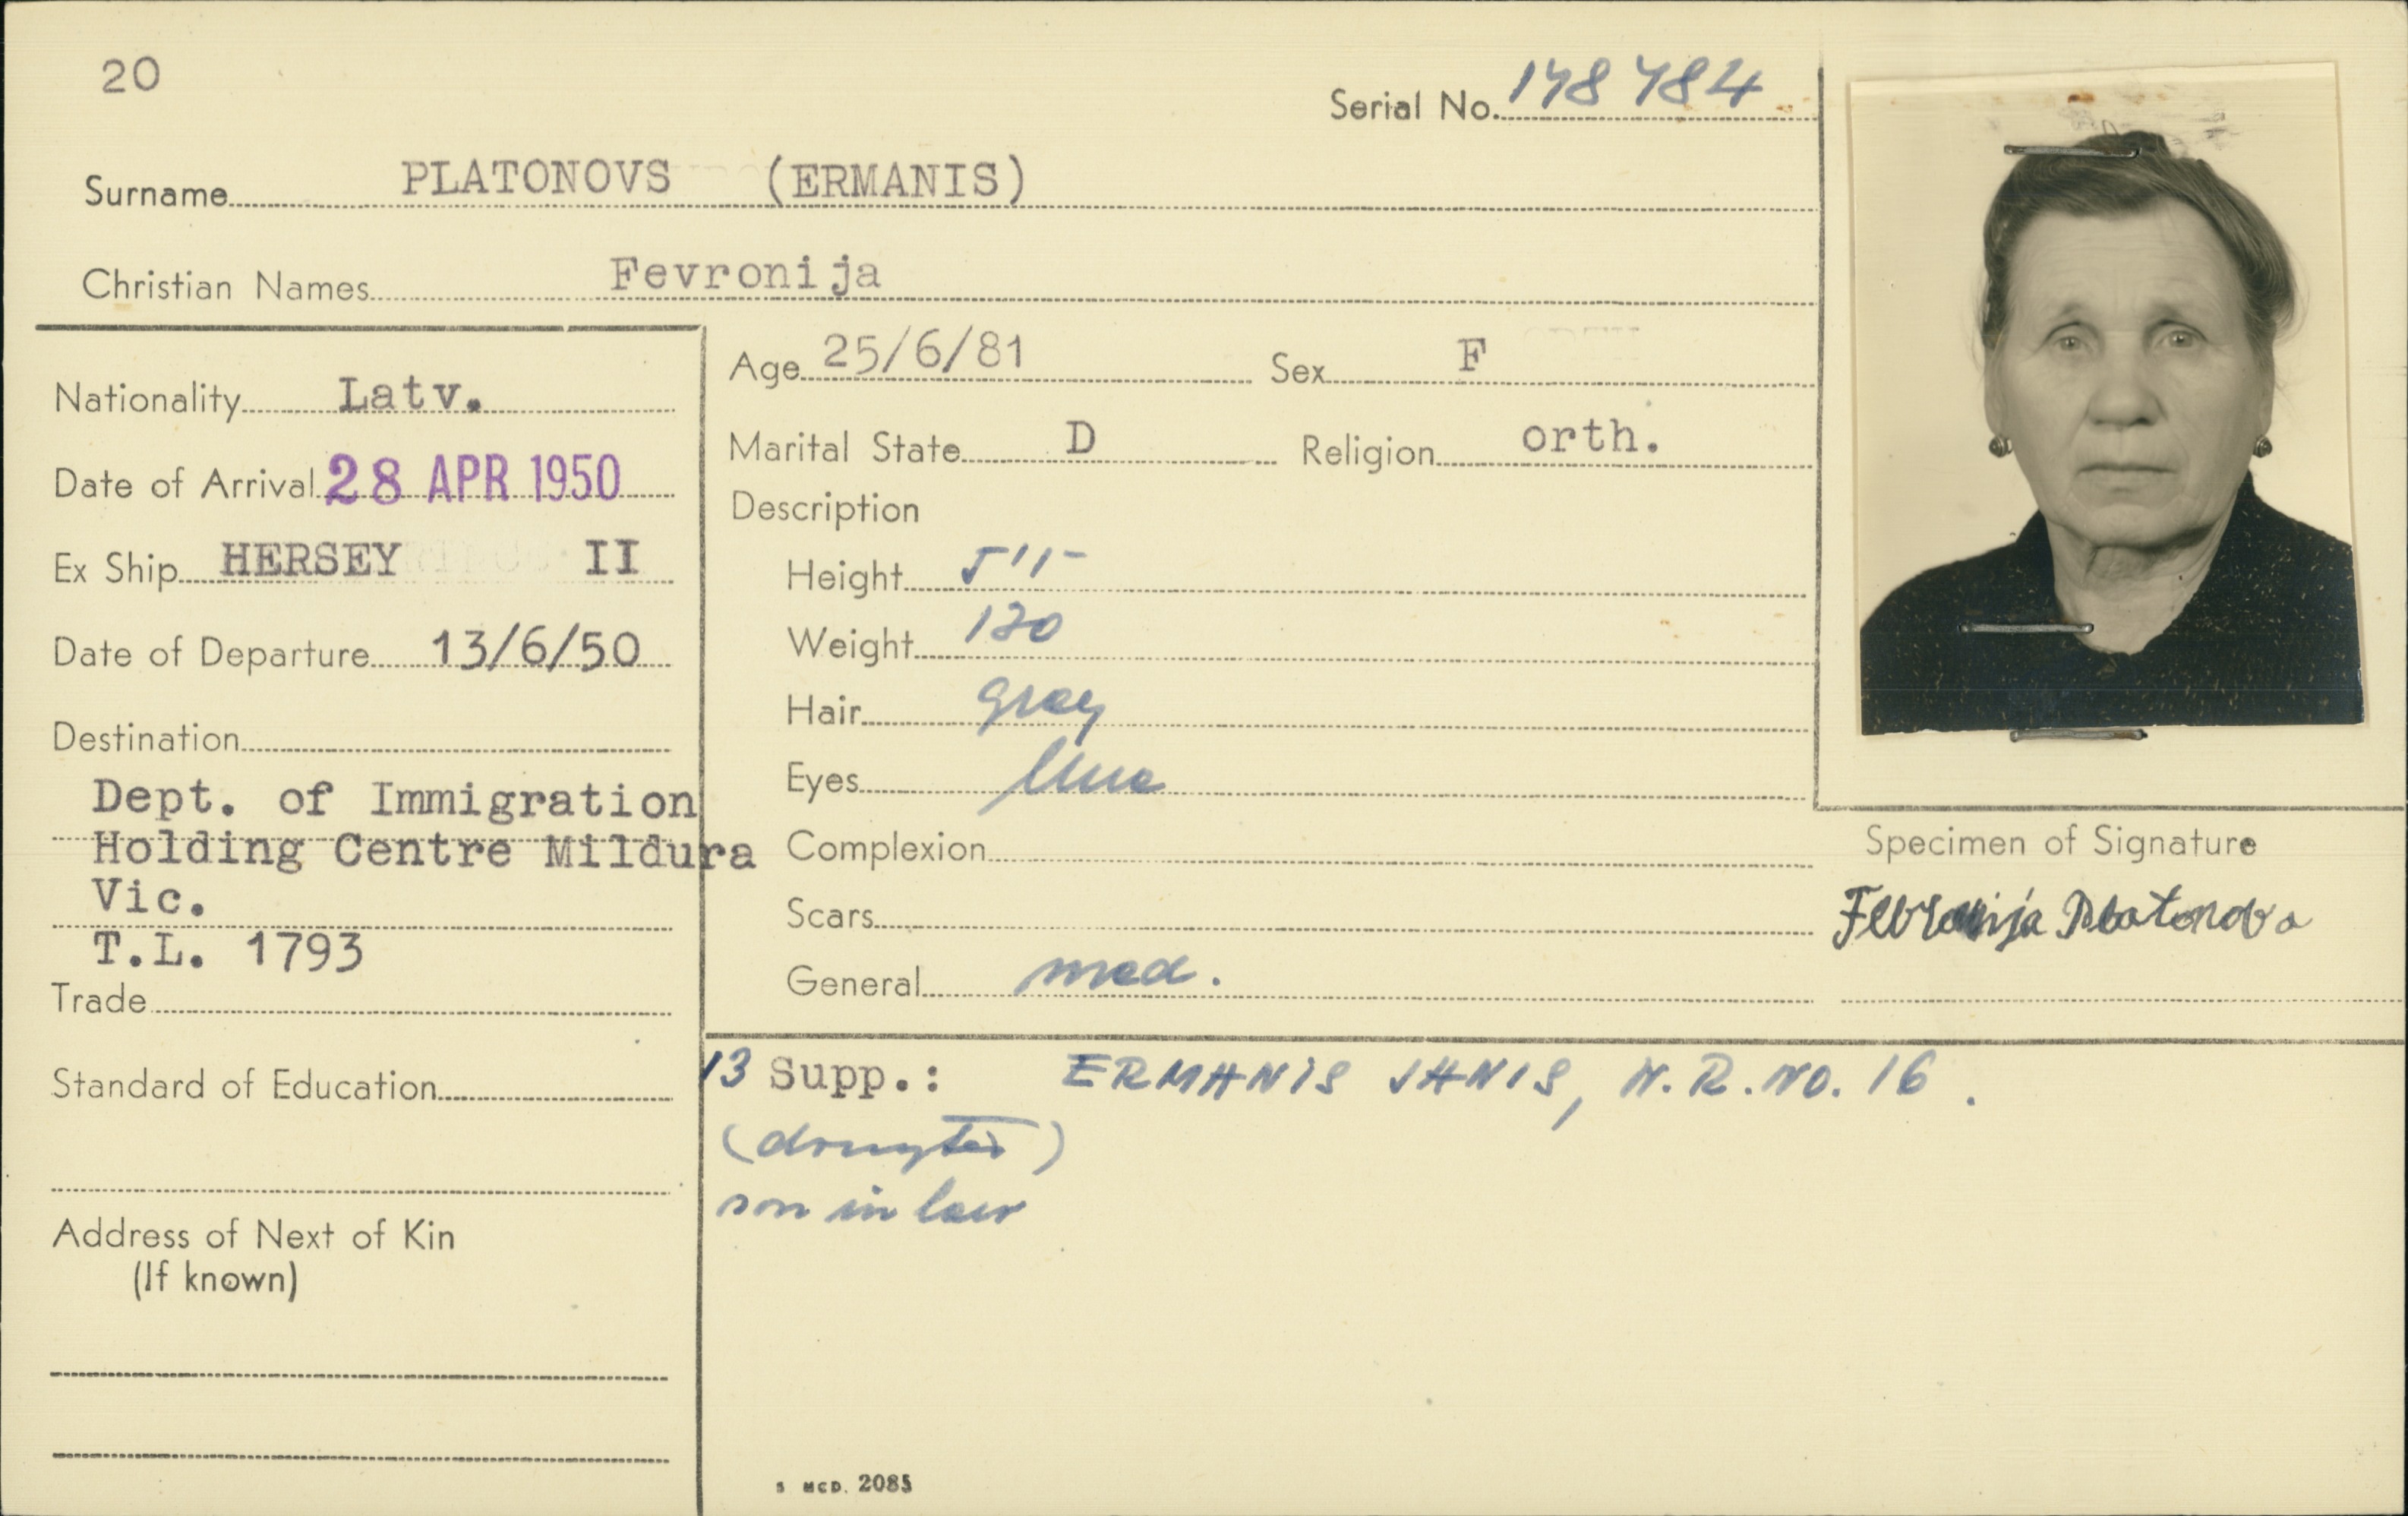 20
Serial No. 178 784
Surname PLATONOVS (ERMANIS)
Christian Names Fevronija
Nationality Latv.
Date of Arrival 28 APR 1950
Ex Ship HERSEY II
Date of Departure 13/6/50
Destination
Dept. of Immigration
Holding Centre Mildura
Vic.
T.L. 1793
Trade
Standard of Education
Address of Next of Kin
(If known)
Age 25/6/81 Sex F
Marital State D Religion orth.
Description
Height 5'1"
Weight 120
Hair grey
Eyes blue
Complexion
Scars
General med.
Specimen of Signature
Fevronija Platonova
13 Supp.: ERMANIS JANIS, N.R.NO. 16.
son in law
S MCD. 2085